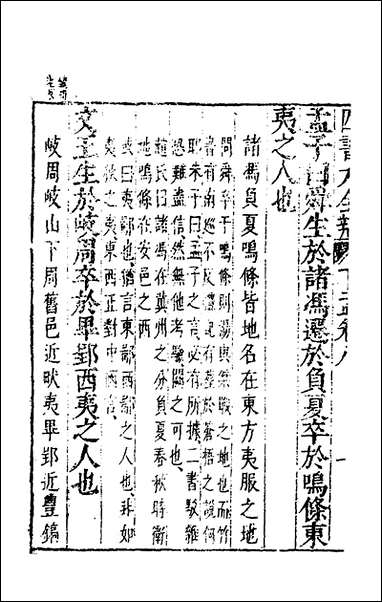 四書大全辯 下孟卷八 一
孟子曰舜生於諸馮遷於負夏卒於鳴條東
夷之人也
諸馮負夏鳴條皆地名在東方夷服之地
問舜卒于鳴條則湯與桀戰之地也而竹
書有南巡不反禮記有葬於蒼梧之說何
耶朱子曰孟子之言必有所據二書駁雜
恐難盡信然無他考驗闕之可也
趙氏曰諸馮在冀州之分負夏春秋時衛
地鳴條在安邑之西
或曰夷鄙也猶言東鄙西鄙之人也非如
夷狄之夷東西正對中而言
文王生於岐周卒於畢郢西夷之人也
岐周岐山下周舊邑近畎夷畢郢近豐鎬